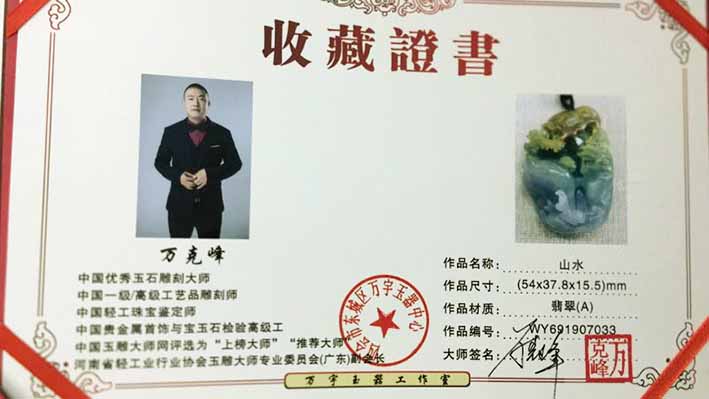 收藏證書
万克峰
中国优秀玉石雕刻大师
中国一级/高级工艺品雕刻师
中国轻工珠宝鉴定师
中国贵金属首饰与宝玉石检验高级工
中国玉雕大师网评选为“上榜大师”“推荐大师”
河南省轻工业行业协会玉雕大师专业委员会(广东)副会长
作品名称： 山水
作品尺寸： (54x37.8x15.5)mm
作品材质： 翡翠(A)
作品编号： WY691907033
大师签名：
万克峰
会市东城区万宇玉器中心
万宇玉器工作室